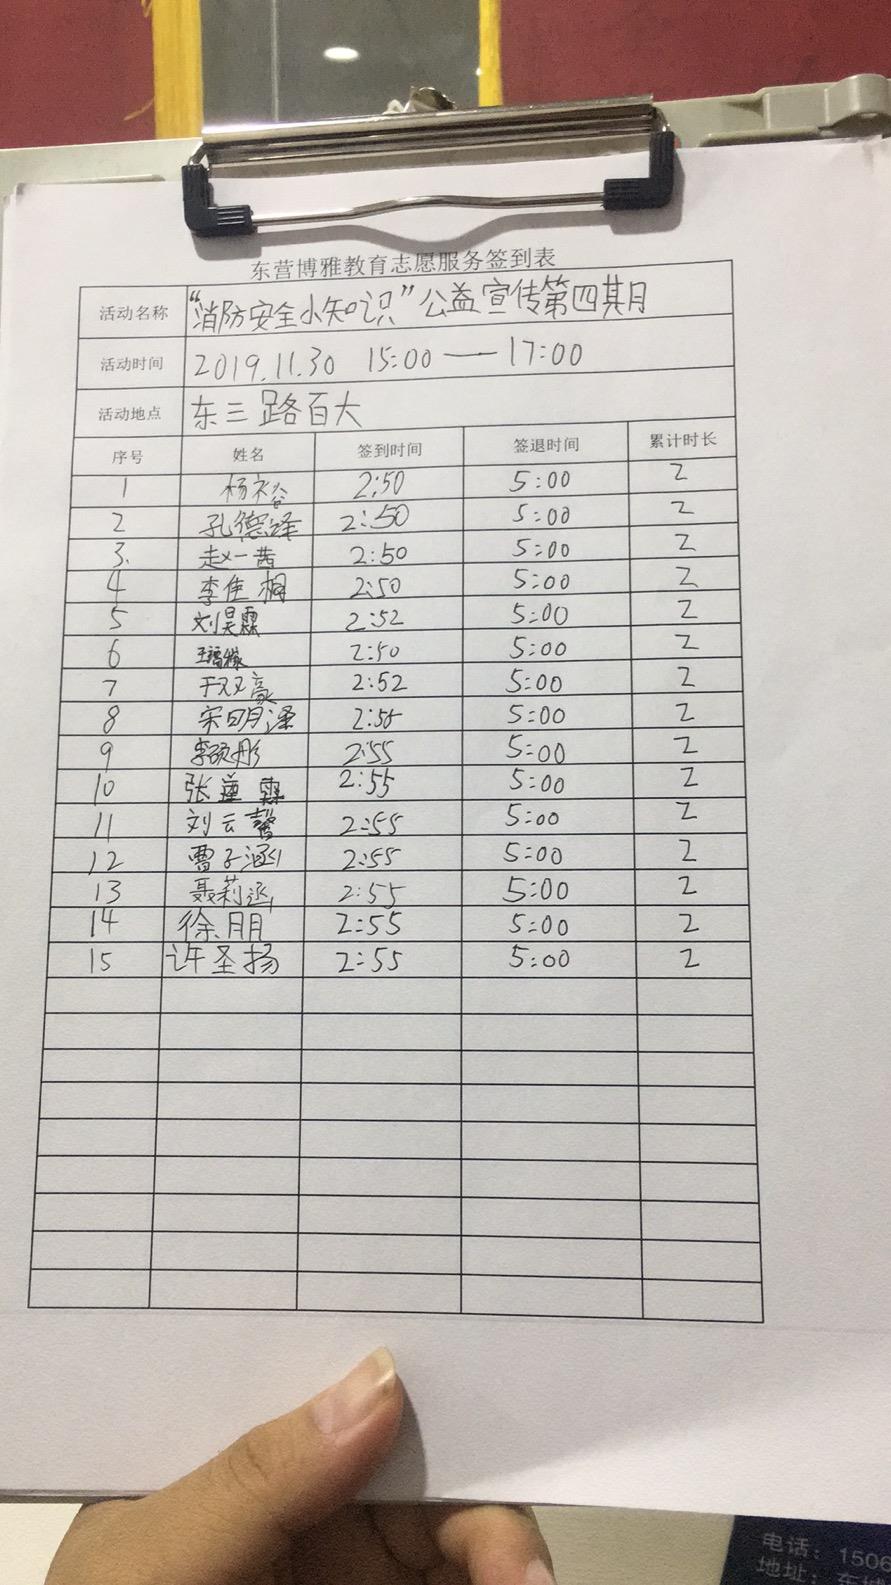 东营博雅教育志愿服务签到表
活动名称 “消防安全小知识”公益宣传第四期
活动时间 2019.11.30 15:00—17:00
活动地点 东三路百大
序号 姓名 签到时间 签退时间 累计时长
1 杨 2:50 5:00 2
2 孔德泽 2:50 5:00 2
3. 赵一茜 2:50 5:00 2
4 李佳桐 2:50 5:00 2
5 刘昊霖 2:52 5:00 2
6 2:50 5:00 2
7 于双豪 2:52 5:00 2
8 宋明泽 5:00 2
9 李硕彤 2:55 5:00 2
10 张 2:55 5:00 2
11 刘云馨 2:55 5:00 2
12 曹子涵 2:55 5:00 2
13 聂莉 2:55 5:00 2
14 徐朋 2:55 5:00 2
15 许圣扬 2:55 5:00 2
电话：1506
地址：东城